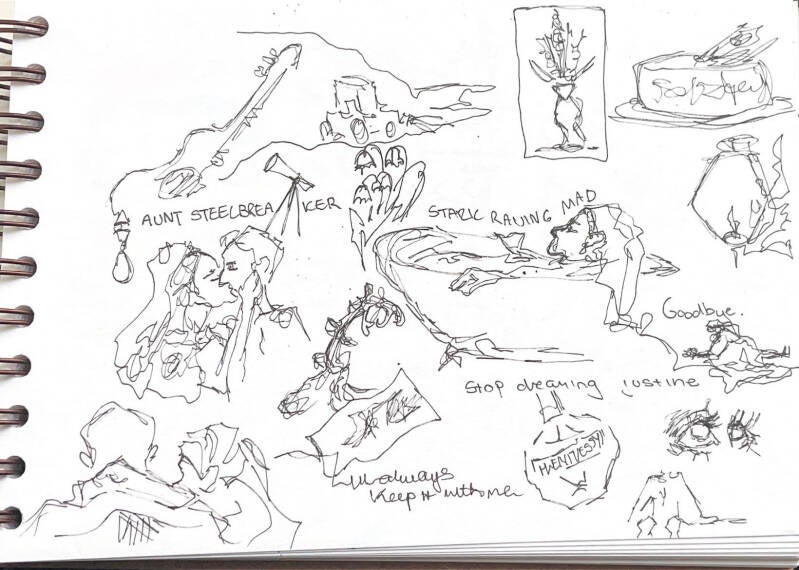 AUNT STEELBREAKER
STARK RAVING MAD
Goodbye.
Stop dreaming justine
I'll always
Keep it with me
HENNESSY